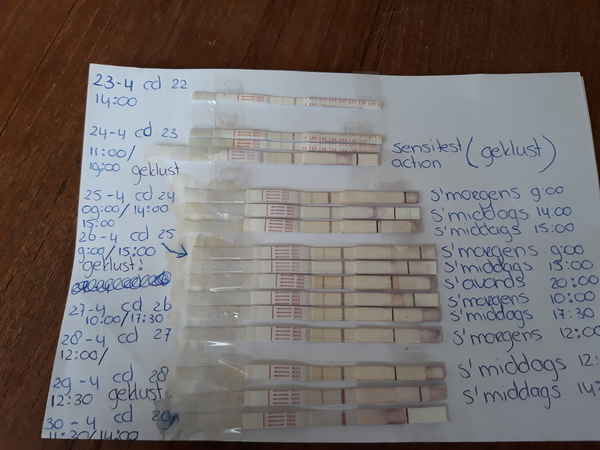 23-4 cd 22
14:00
24-4 cd 23
11:00/
19:00 geklust
sensitest (geklust)
action
25-4 cd 24
09:00/14:00
15:00
s'morgens 9:00
s'middags 14:00
s'middags 15:00
26-4 cd 25
9:00/15:00
geklust!
s'morgens 9:00
s'middags 15:00
s'avonds 20:00
27-4 cd 26
10:00/17:30
s'morgens 10:00
s'middags 17:30
28-4 cd 27
12:00/
s'morgens 12:00
29-4 cd 28
12:30 geklust.
s'middags 12:
30-4 cd 29
11:30/14:00
s'middags 14: